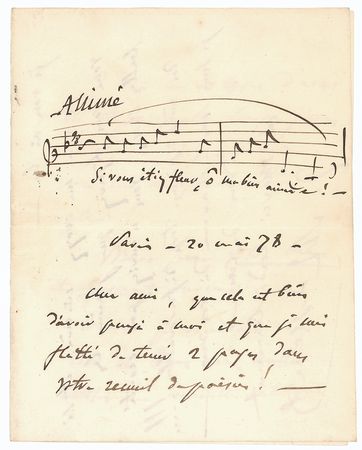 Animé
Si vous étiez fleur, ô ma bien aimée ! —
Paris – 20 mai 78 –
Cher ami, que cela est bien
d'avoir pensé à moi et que je suis
flatté de tenir 2 pages dans
votre recueil de poésies ! —